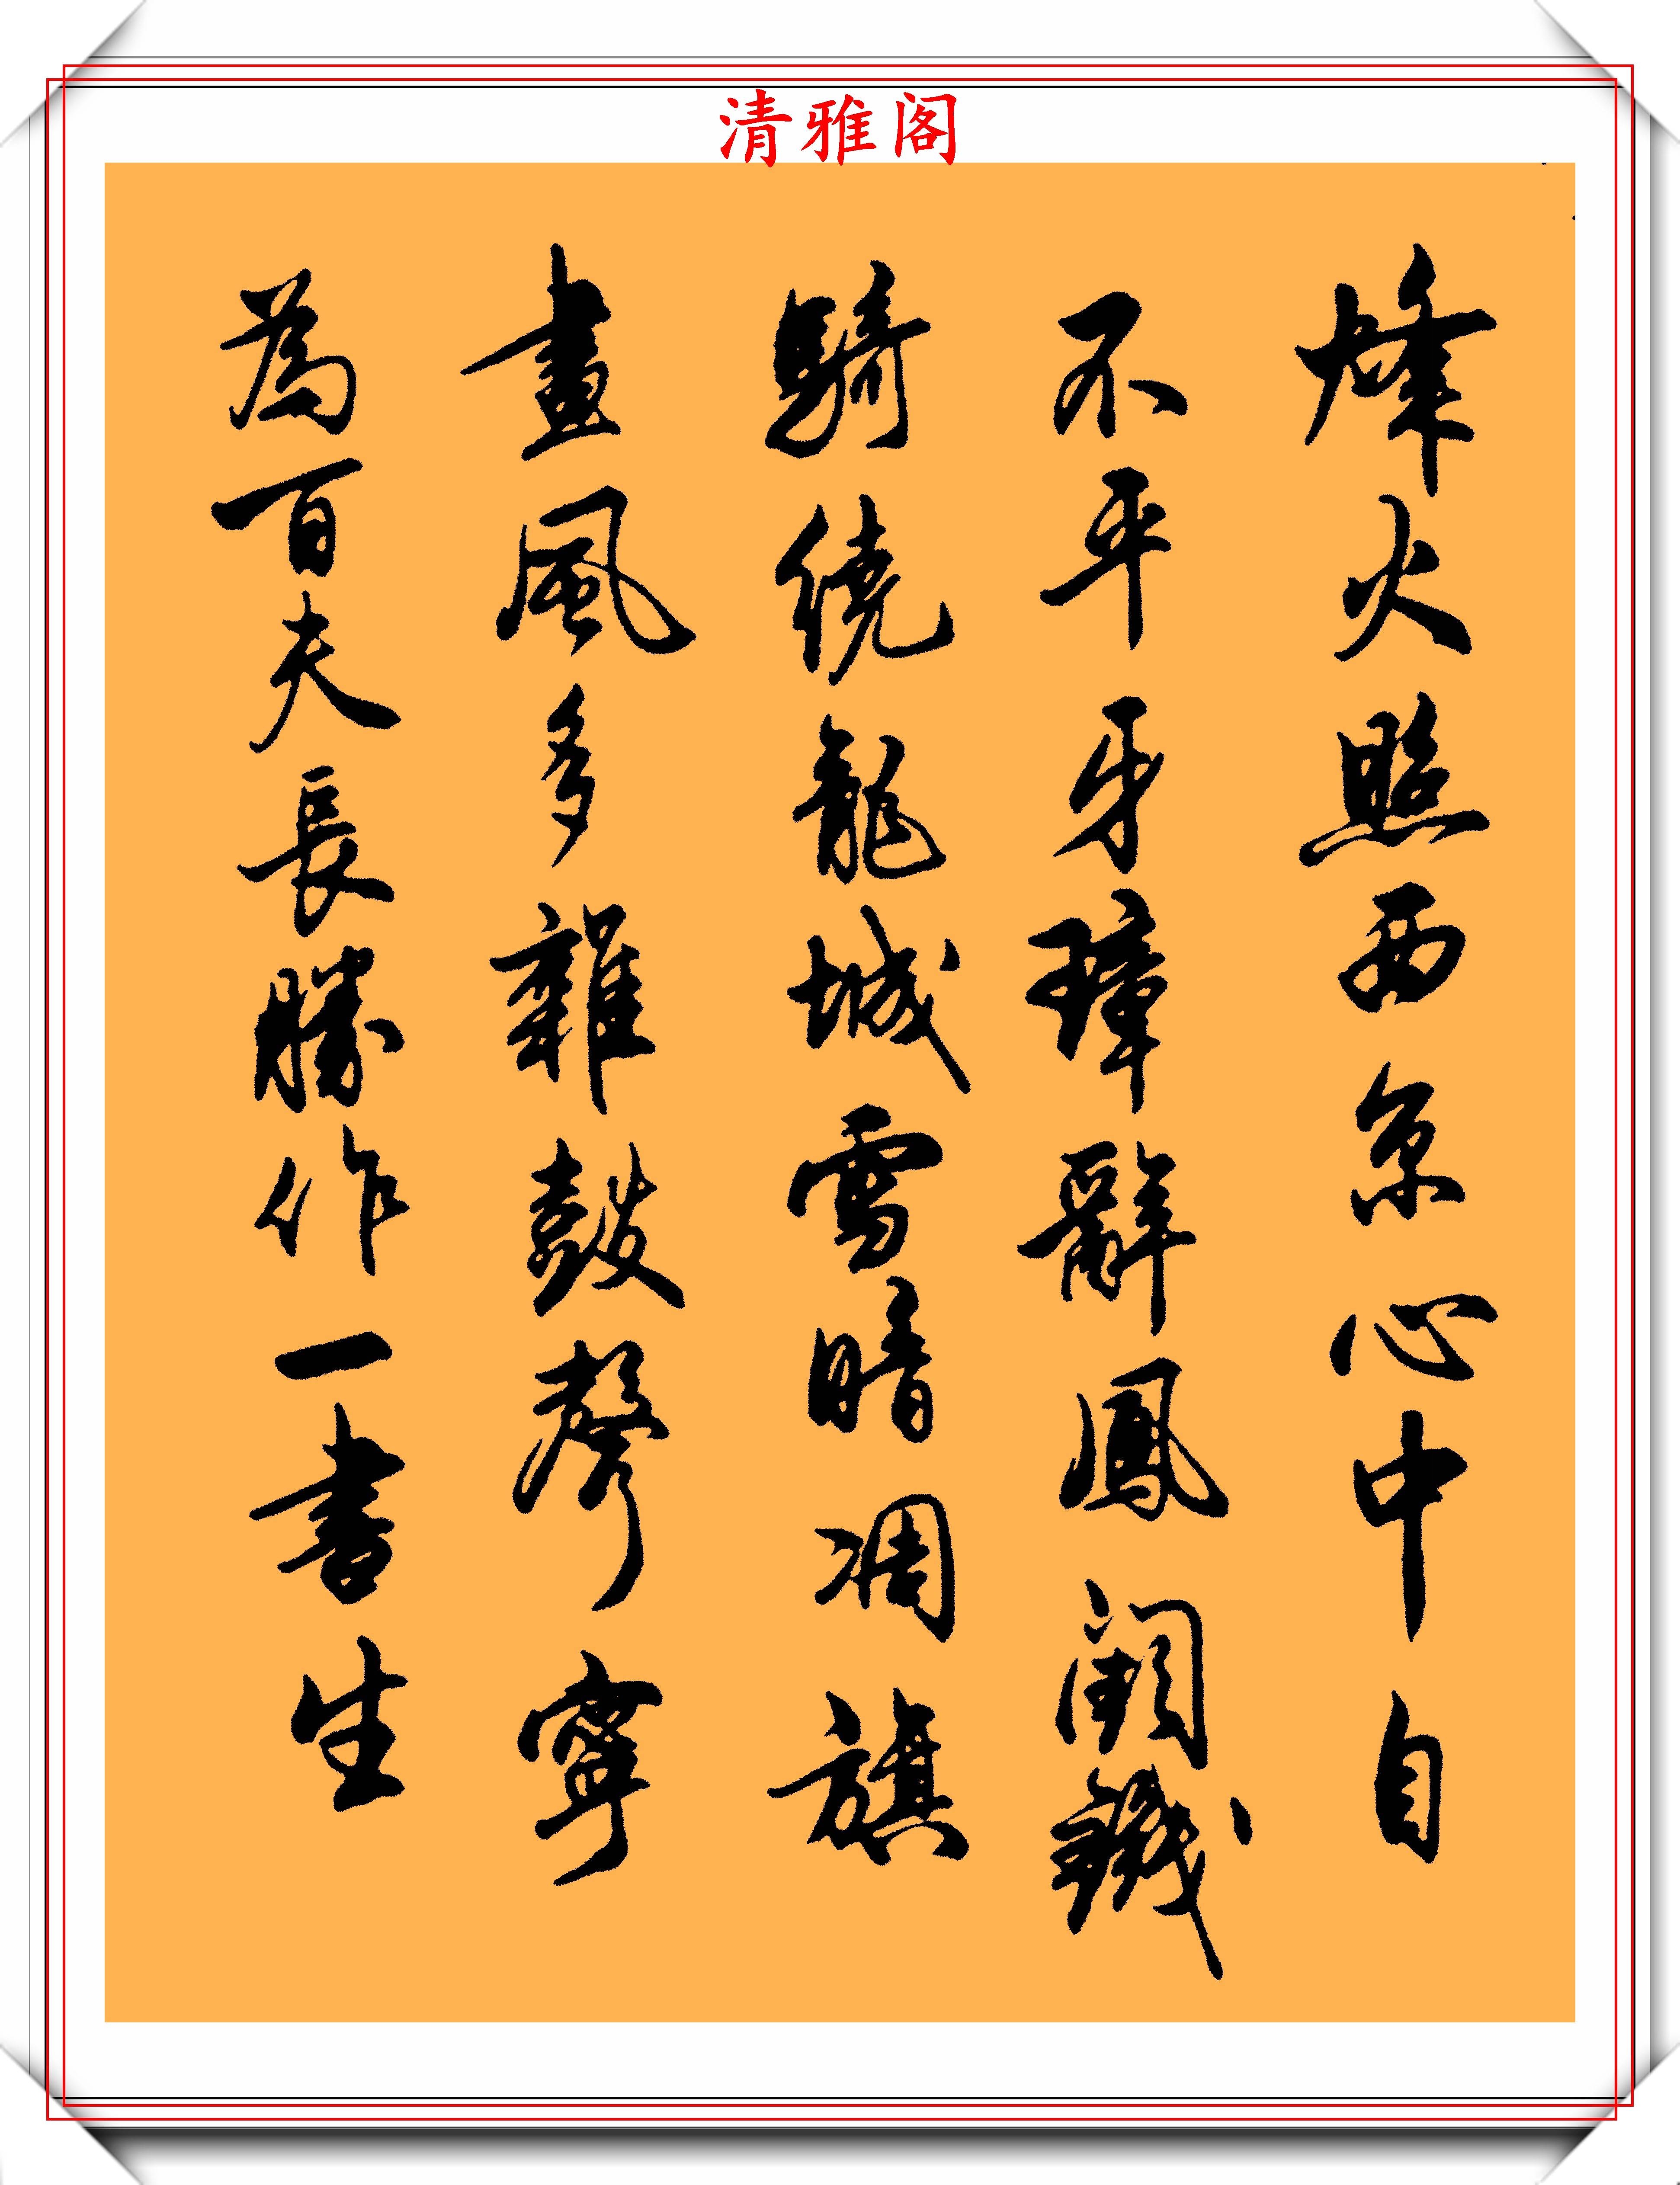 清雅阁
烽火照西京心中自
不平牙璋辭鳳闕鐵
騎繞龍城雪暗凋旗
畫風多雜鼓聲寧
為百夫長勝作一書生